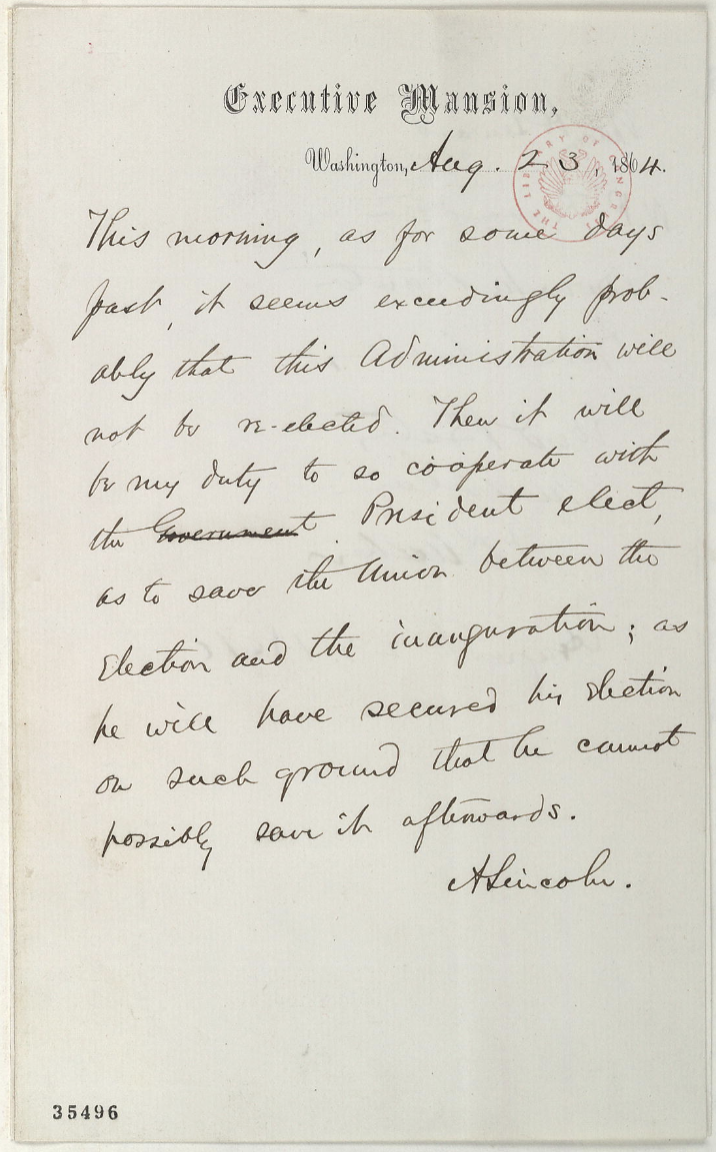 Executive Mansion,
Washington, Aug. 23, 1864.
This morning, as for some days
past, it seems exceedingly prob-
ably that this Administration will
not be re-elected. Then it will
be my duty to so co-operate with
the Government President elect,
as to save the Union between the
election and the inauguration; as
he will have secured his election
on such ground that he cannot
possibly save it afterwards.
A Lincoln.
35496